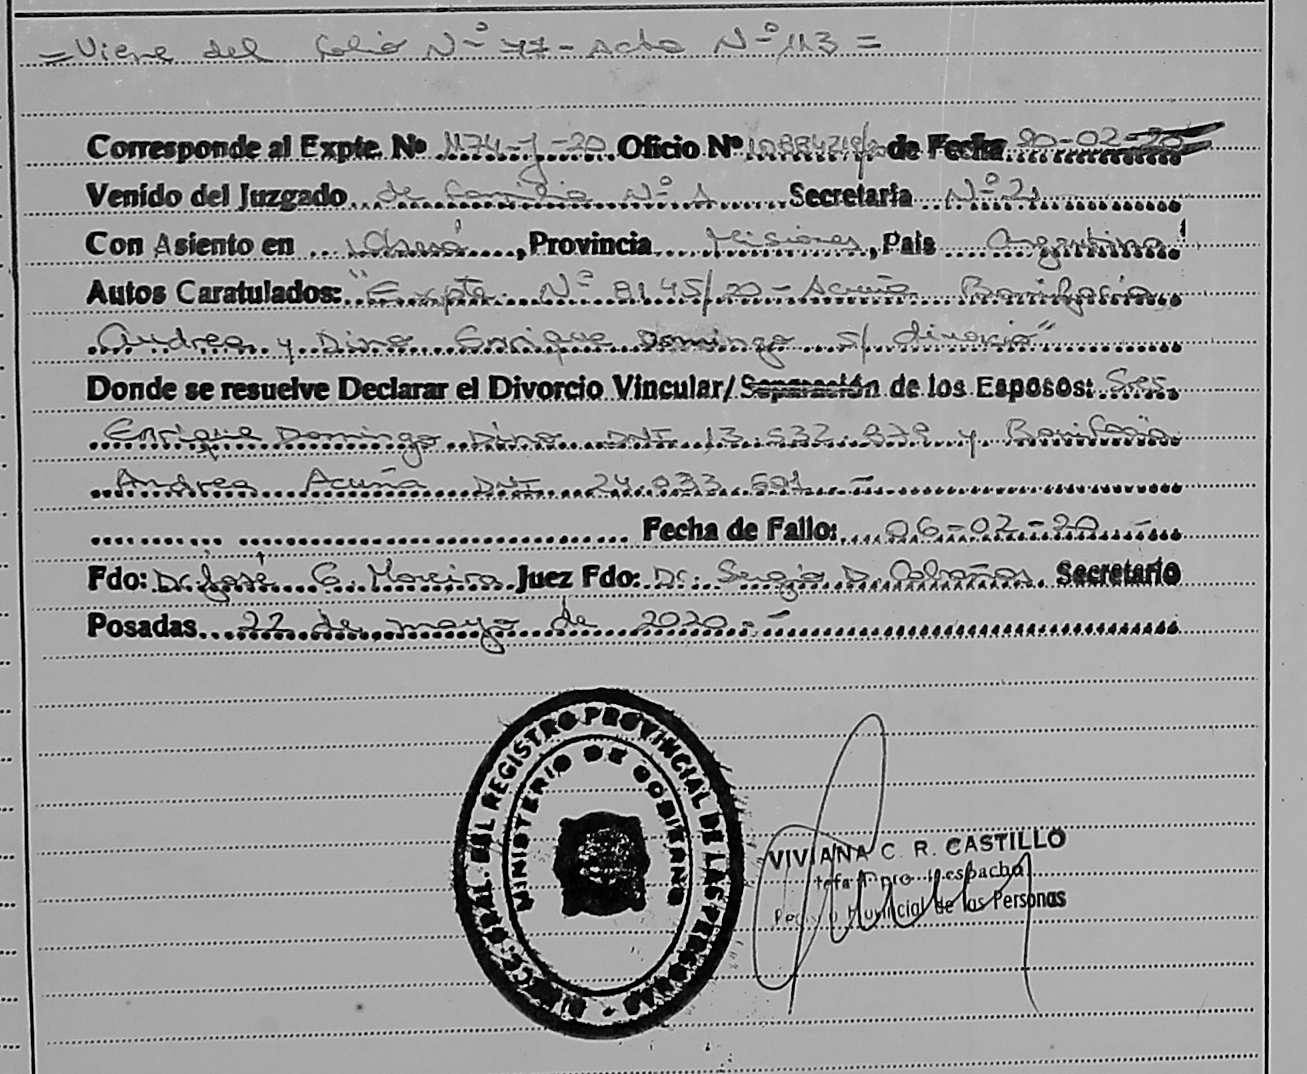 = Viene del folio Nº 77 - Acta Nº 113 =
Corresponde al Expte. Nº 1174-J-20 Oficio Nº de Fecha 20-02-20
Venido del Juzgado de Familia Nº 1 Secretaria Nº 21
Con Asiento en , Provincia Misiones, Pais Argentina
Autos Caratulados: "Expte. Nº 8145/20 - Acuña Bonifacia
Andrea y Dino Enrique Domingo s/ divorcio"
Donde se resuelve Declarar el Divorcio Vincular/Separación de los Esposos: Sres.
Enrique Domingo Dino DNI 13.532.879 y Bonifacia
Andrea Acuña DNI 24.033.501 -
Fecha de Fallo: 06-02-20 -
Fdo: Dr. José G. Moreira Juez Fdo: Dr. Sergio D. Secretario
Posadas 22 de mayo de 2020. -
DIRECC. GRAL. DEL REGISTRO PROVINCIAL DE LAS PERSONAS
MINISTERIO DE GOBIERNO
VIVIANA C. R. CASTILLO
Provincial de las Personas